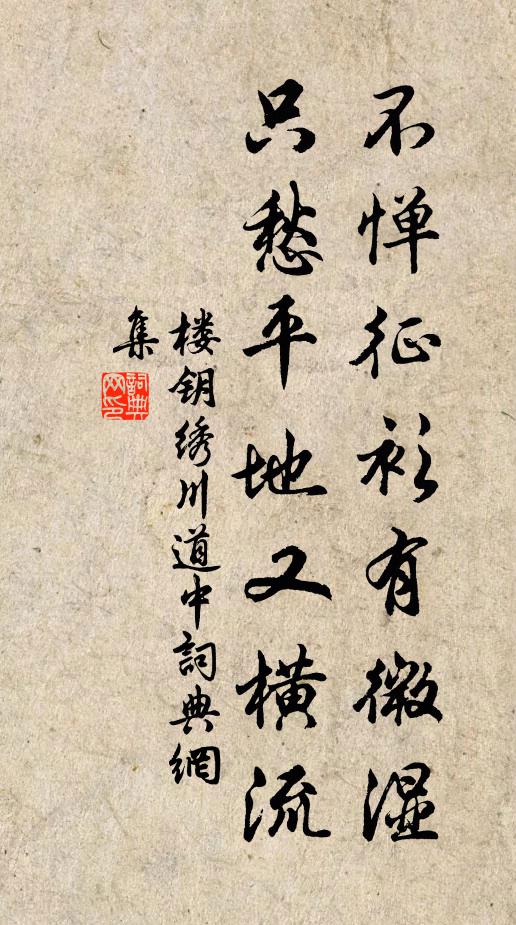 不惮征衫有微湿
只愁平地又横流
楼钥绣川道中詞典網
集
詞典
网印